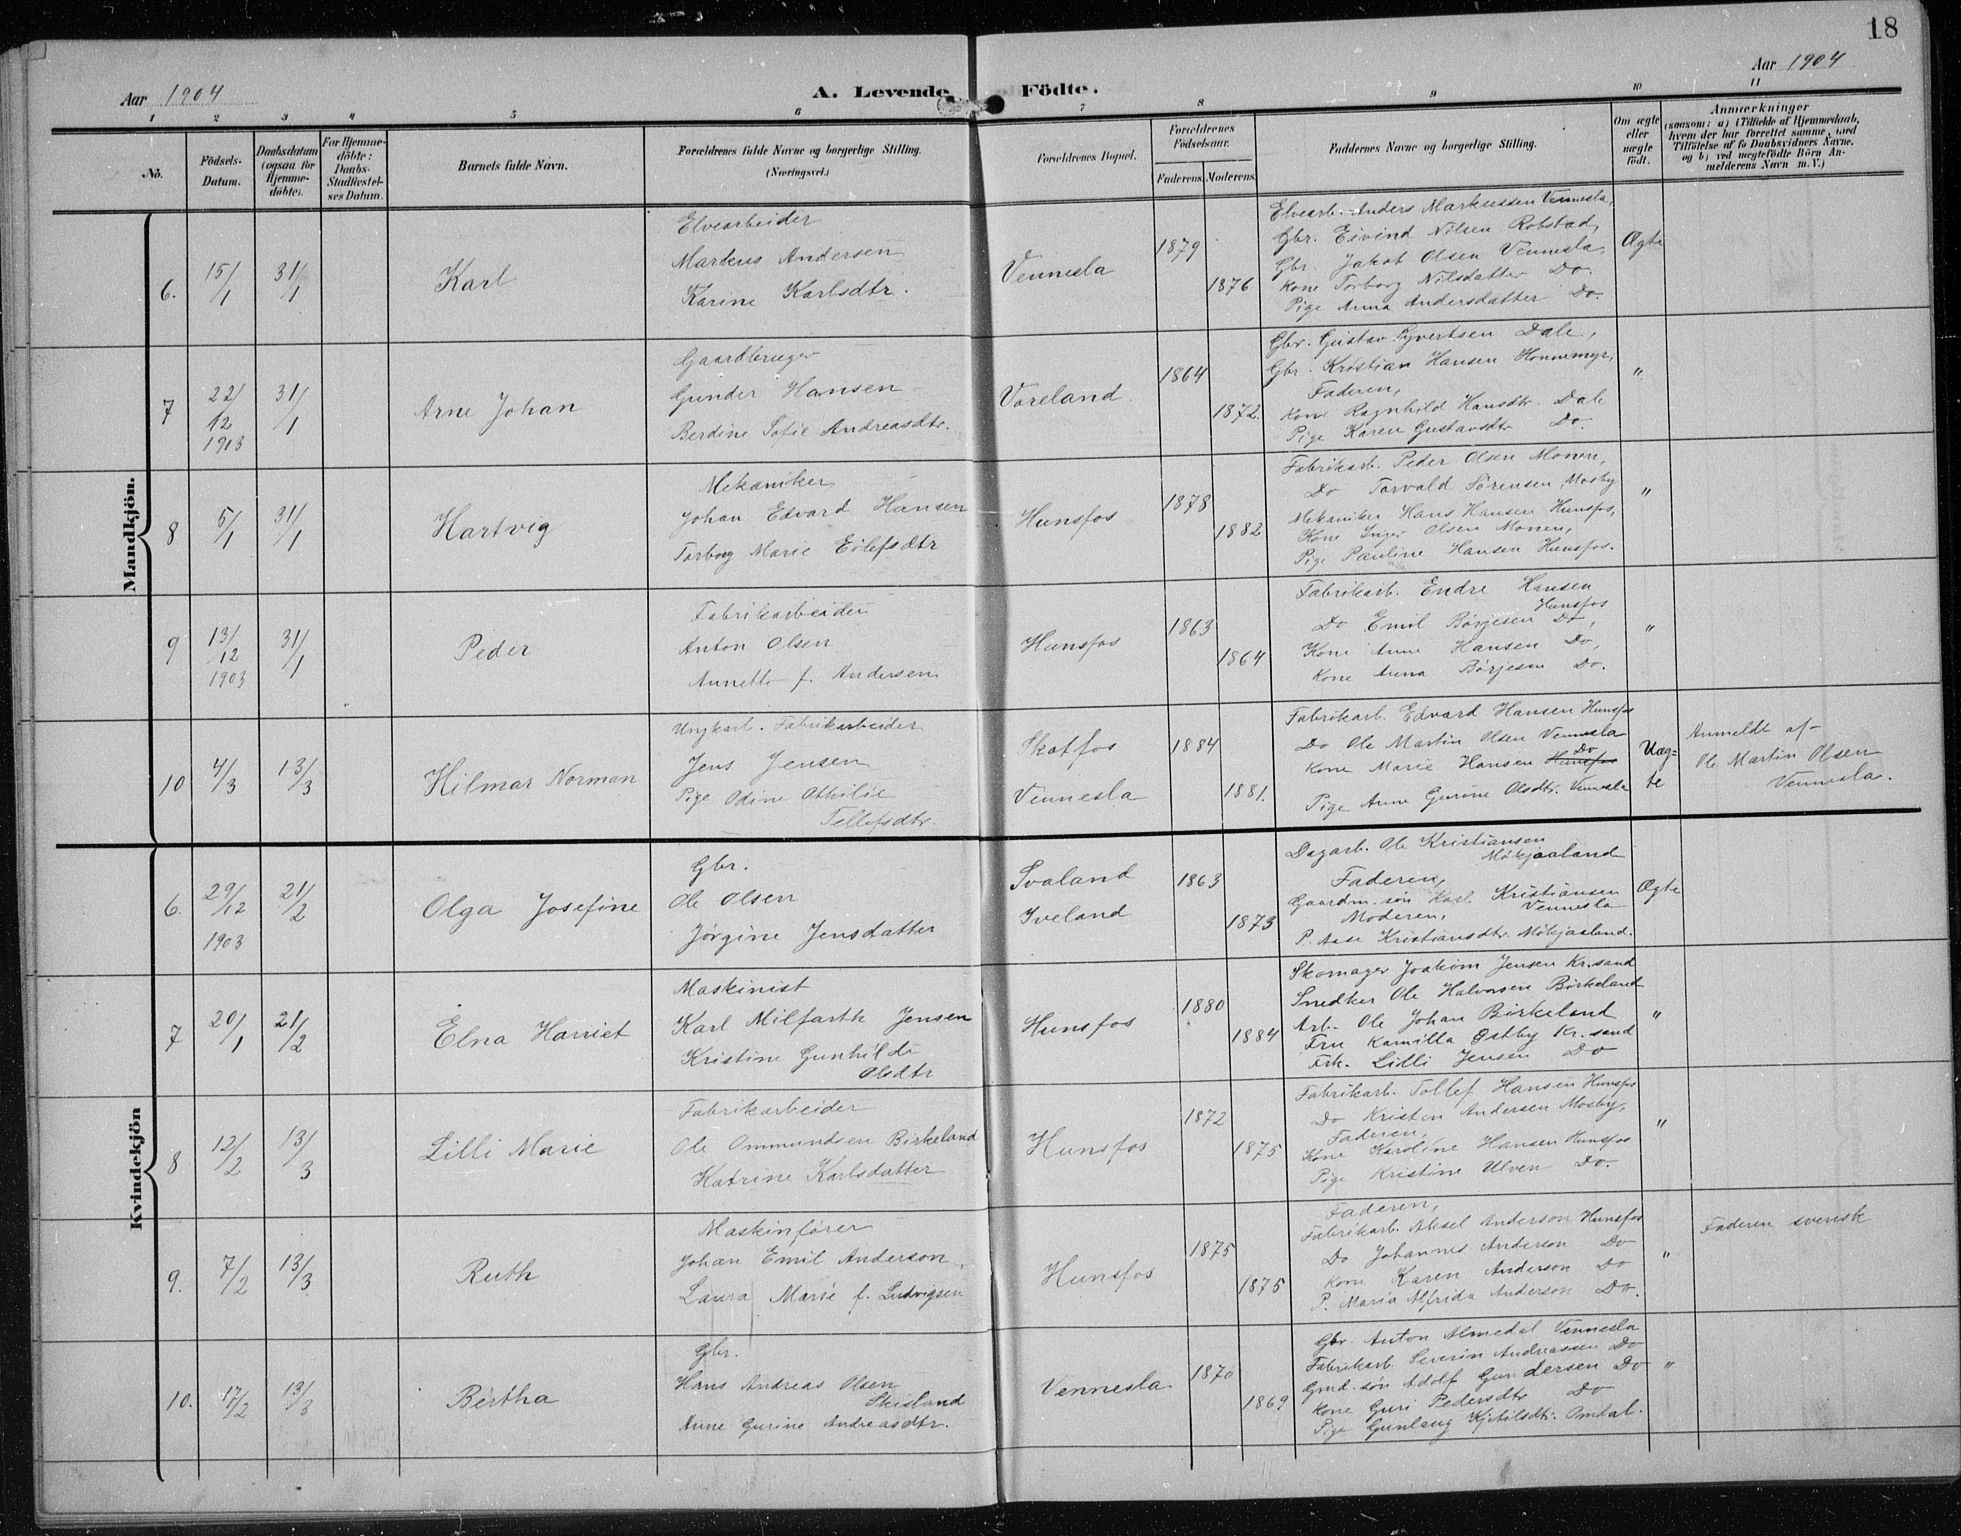 18
Aar 1904
A. Levende Födte.
Aar 1904
1 2 3 4 5 6 7 8 9 10 11
No.
Födsels-
Datum.
Daabsdatum
(ogsaa for
Hjemme-
döbte).
For Hjemme-
döbte:
Daabs-
Stadfæstel-
ses Datum.
Barnets fulde Navn.
Forældrenes fulde Navne og borgerlige Stilling.
(Næringsvei.)
Forældrenes Bopæl.
Forældrenes
Födselsaar.
Faderens. Moderens.
Faddernes Navne og borgerlige Stilling.
Om ægte
eller
uægte
födt.
Anmærkninger
(saasom: a) i Tilfælde af Hjemmedaab,
hvem der har forrettet samme, med
Tilföielse af to Daabsvidners Navne.
og b) ved uægtefödte Börn An-
melderens Navn m. V.)
Mandkjön.
6.
15/1
31/1
Karl
Elvearbeider
Markus Andersen
Karine Karlsdtr.
Vennesla
1879
1876
Elvearb. Anders Markussen Vennesla,
Gbr. Eivind Nilsen Robstad,
Gbr. Jakob Olsen Vennesla,
Kone Torborg Nilsdatter Do.
Pige Anna Andersdatter Do.
Ægte
7
22/12
1903
31/1
Arne Johan
Gaardbruger
Gunder Hansen
Berdine Sofie Andreasdtr.
Voreland.
1864
1872.
Gbr. Gustav Syvertsen Dale,
Gbr. Kristian Hansen Honnemyr,
Faderen,
Kone Ragnhild Hansdtr. Dale
Pige Karen Gustavsdtr Do.
"
8
5/1
31/1
Hartvig
Mekaniker
Johan Edvard Hansen
Torborg Marie Eilefsdtr
Hunsfos
1878
1882
Fabrikarb. Peder Olsen Monen,
Do Torvald Sörensen Mosby
Mekaniker Hans Hansen Hunsfos,
Kone Inger Olsen Monen,
Pige Pauline Hansen Hunsfos.
"
9
13/12
1903
31/1
Peder
Fabrikarbeider
Anton Olsen
Annette f. Andersen
Hunsfos
1863
1864
Fabrikarb. Endre Hansen
Hunsfos
Do Emil Børjesen Do,
Kone Anne Hansen Do,
Kone Anna Børjesen Do.
"
10
4/3
13/3
Hilmar Norman
Ungkarl. Fabrikarbeider
Jens Jensen
Pige Odine Othilie
Tellefsdtr.
Skotfos
Vennesla
1884
1881.
Fabrikarb. Edvard Hansen Hunsfos
Do Ole Martin Olsen Vennesla
Do
Kone Marie Hansen Hunsfos
Pige Anne Gurine Olsdtr. Vennesla
Uæg-
te
Anmeldt af
Ole Martin Olsen
Vennesla.
Kvindekjön
6.
29/12
1903
21/2
Olga Josefine
Gbr.
Ole Olsen
Jørgine Jensdatter
Svaland
Iveland
1863
1873
Dagarb. Ole Kristiansen
Mökjaaland
Faderen,
Gaardm.søn Karl Kristiansen
Vennesla
Moderen,
P. Aase Kristiansdtr. Mökjaaland.
Ægte
7
20/1
21/2
Elna Harriet
Maskinist
Karl Milfarth Jensen
Kristine Gunhilde
Olsdtr
Hunsfos
1880
1884
Skomager Joakim Jensen Kr.sand
Snedker Ole Halvorsen Birkeland
Arb. Ole Johan Birkeland
Fru Kamilla Østby Kr.sand
Frk. Lilli Jensen Do
"
8
12/2
13/3
Lilli Marie
Fabrikarbeider
Ole Ommundsen Birkeland
Katrine Karlsdatter
Hunsfos
1872
1875
Fabrikarb. Tollef Hansen Hunsfos
Do Kristen Andersen Mosby,
Faderen,
Kone Karoline Hansen Hunsfos
Pige Kristine Ulven Do.
"
9.
7/2
13/3
Ruth
Maskinfører
Johan Emil Anderson,
Laura Marie f. Ludvigsen
Hunsfos
1875
1875
Faderen,
Fabrikarb. Aksel Anderson Hunsfos
Do Johannes Anderson Do
Kone Karen Anderson Do
P. Maria Alfrida Anderson Do.
"
Faderen svensk
10.
17/2
13/3
Bertha
Gbr.
Hans Andreas Olsen
Skisland
Anne Gurine Andreasdtr.
Vennesla
1870
1869
Gbr. Anton Almedal Vennesla
Fabrikarb. Severin Andreassen Do
Gmd.søn Adolf Gundersen Do
Kone Guri Pedersdtr Do
Pige Gunlaug Kjetilsdtr. Omdal.
"